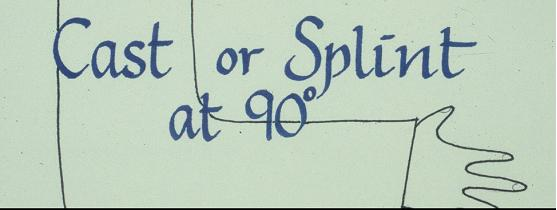 Cast or Splint
at 90°